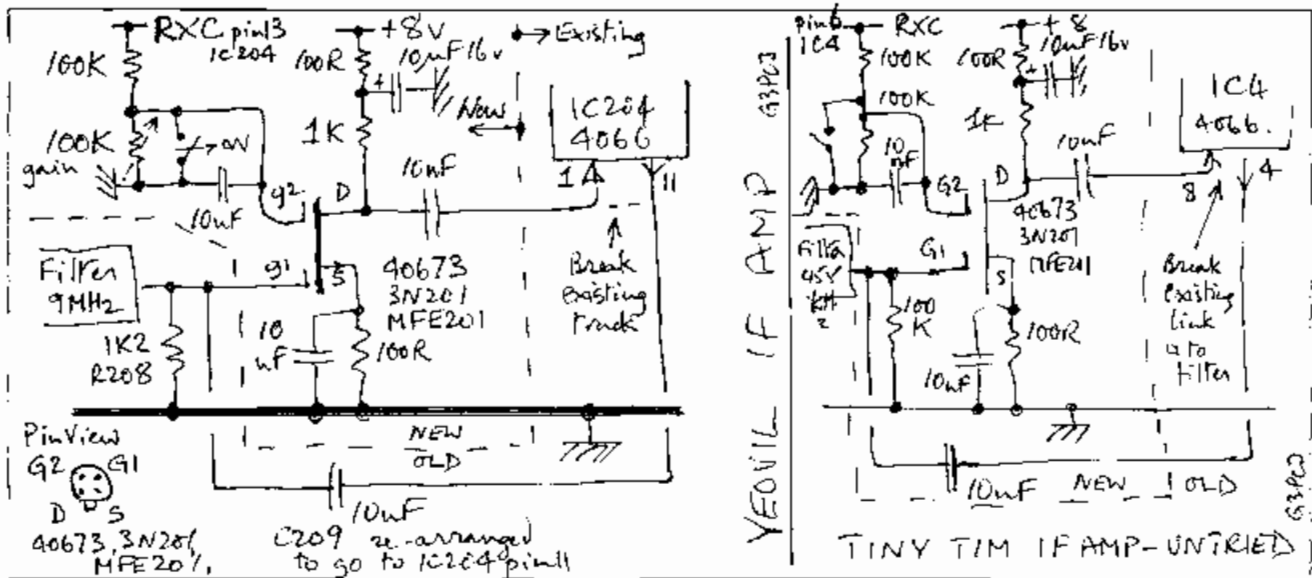 RXC pin13
IC204
100K
100K
gain
ON
10nF
+8V
100R
10µF 16v
1K
→ Existing
New
IC204
4066
1
11
10nF
g2
D
g1
S
40673
3N201
MFE201
Break
existing
track
Filter
9MHz
1K2
R208
10
nF
100R
NEW
OLD
Pin View
G2 G1
D S
40673, 3N201,
MFE201.
10nF
C209 re-arranged
to go to IC204 pin11
YEOVIL IF AMP
G3PCJ
pin6
IC4
RXC
100K
100K
10
nF
+8
100R
10µF/16v
1K
10nF
IC4
4066.
8
4
G2
D
G1
S
40673
3N201
MFE201
Filter
455
kHz
100
K
10nF
100R
Break
existing
link
to
Filter
10nF
NEW
OLD
G3PCJ
TINY TIM IF AMP - UNTRIED